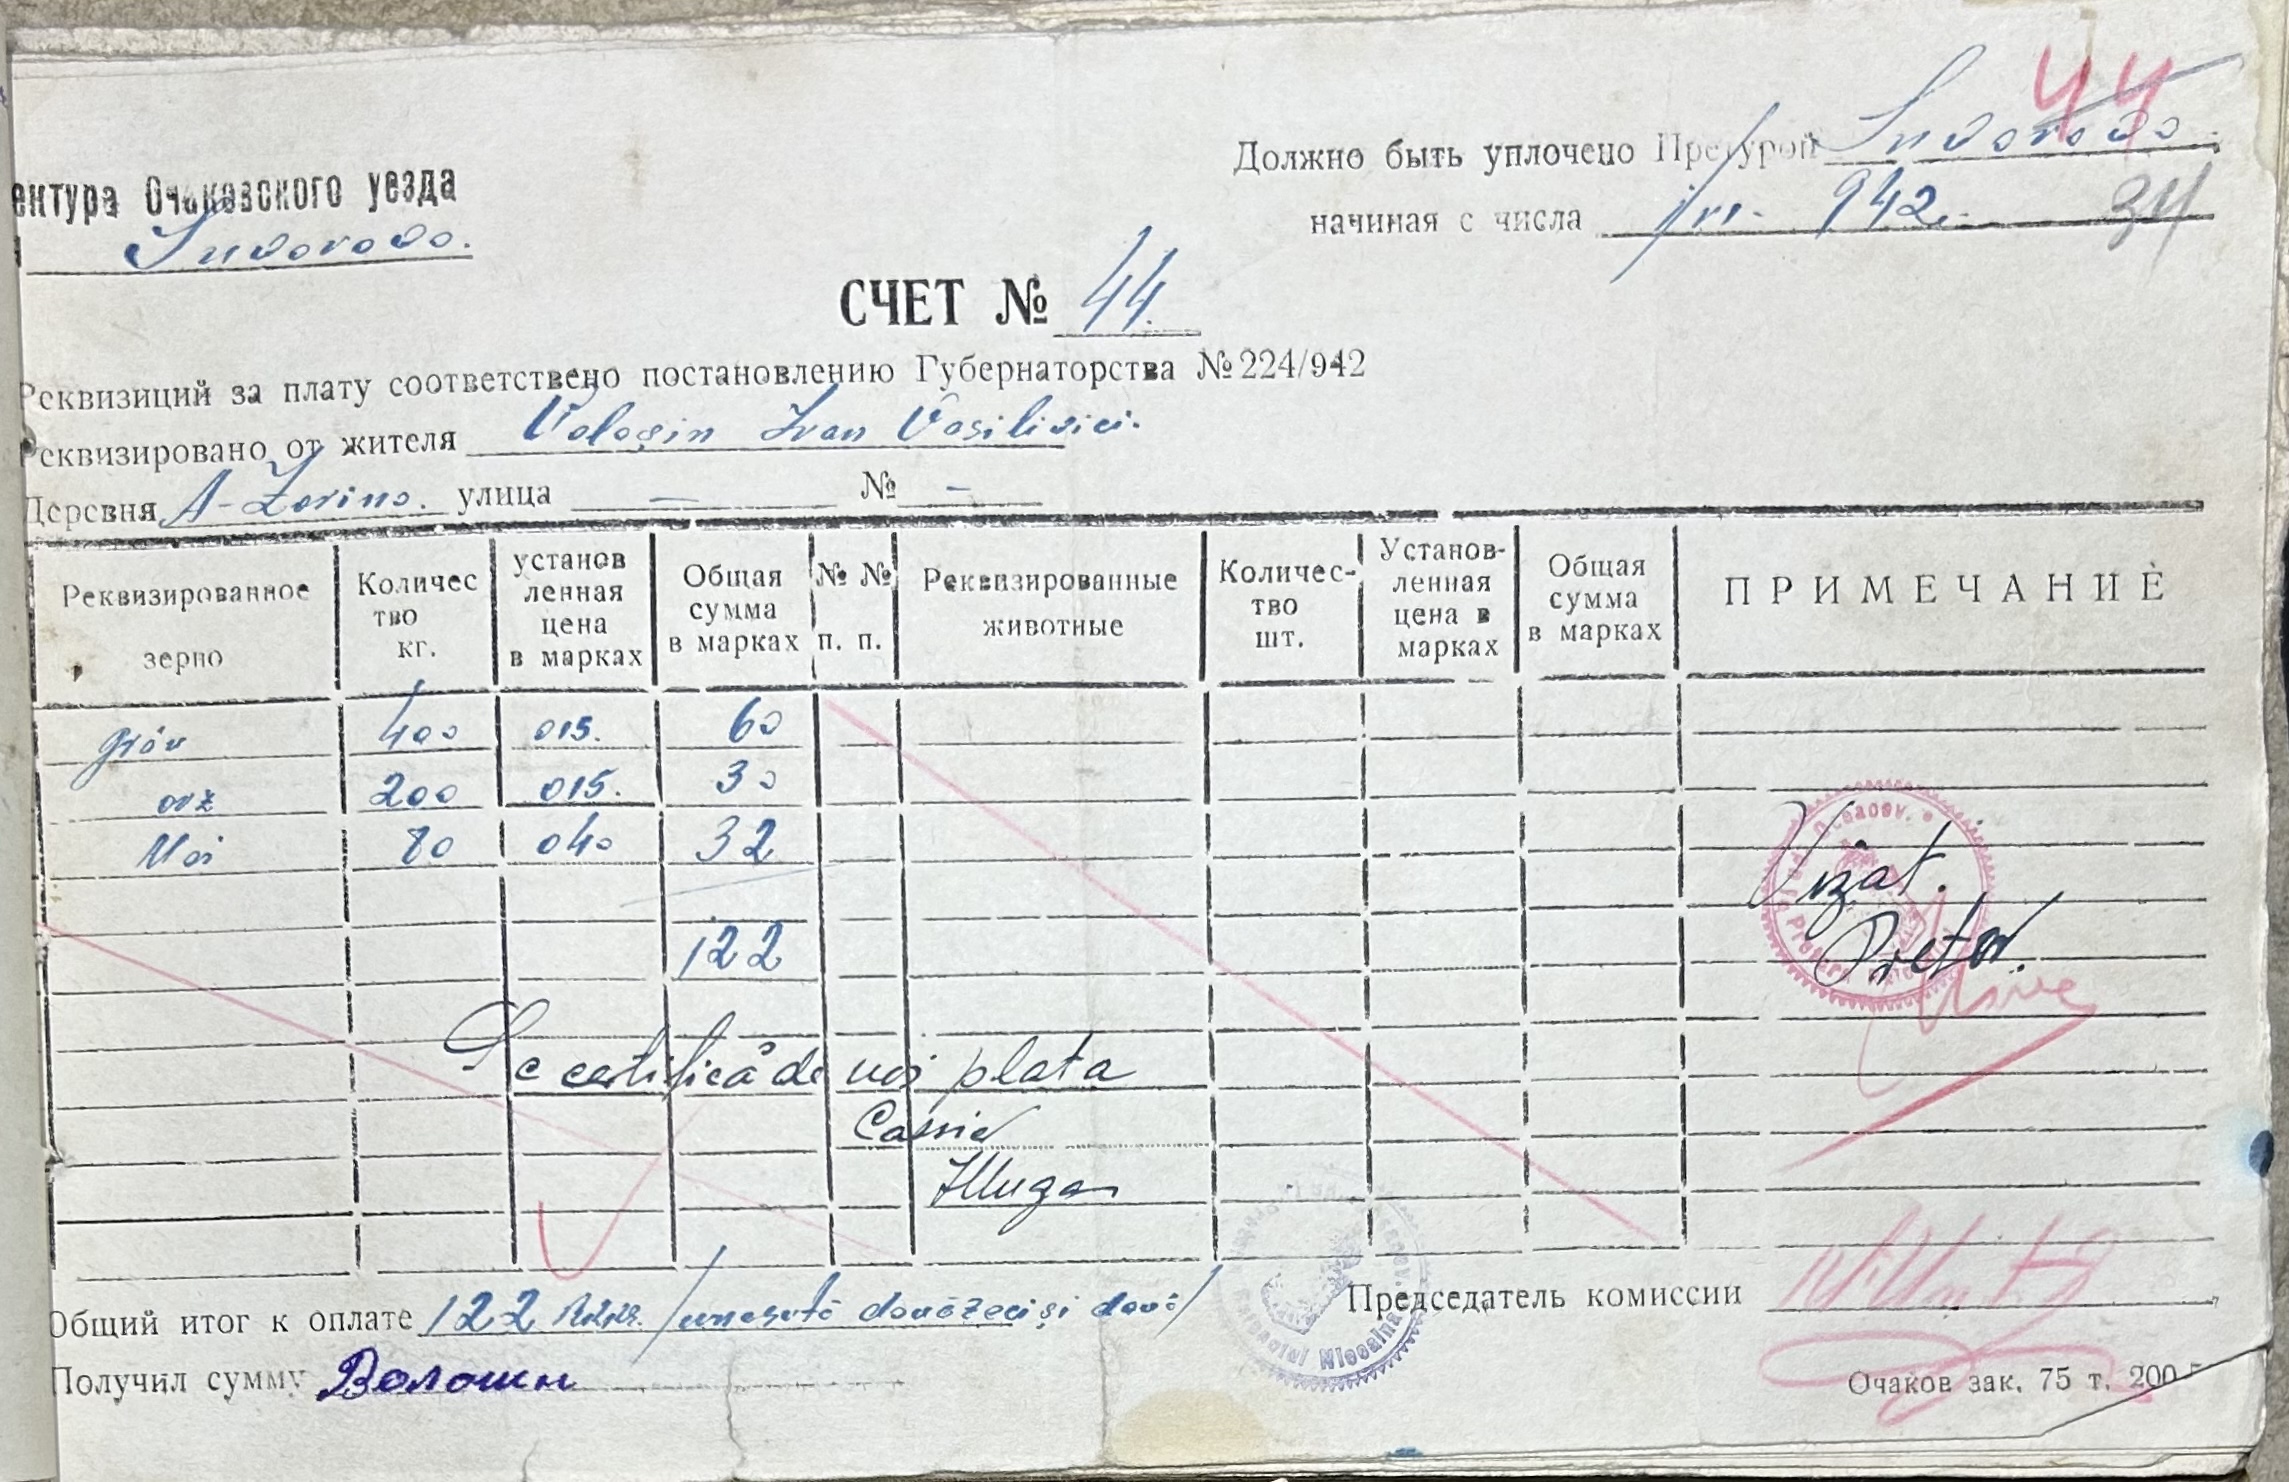 44
Должно быть уплочено Претурой
ентура Очаковского уезда
начиная с числа 942 34
СЧЕТ № 44.
Реквизиций за плату соответствено постановлению Губернаторства №224/942
Реквизировано от жителя Voloșin Ivan Vasilivici.
Деревня A-Zorino. улица — № -
Реквизированное зерно
Количес тво кг.
установ ленная цена в марках
Общая сумма в марках
№ № п. п.
Реквизированные животные
Количес- тво шт.
Установ- ленная цена в марках
Общая сумма в марках
ПРИМЕЧАНИЕ
grâu 400 015. 60
orz 200 015. 30
80 040 32
122
Vizat.
Pretor.
Se certifică de noi plata
Casier
Общий итог к оплате 122 /unasută douăzeci și două/
Председатель комиссии
Получил сумму Волошин
Очаков зак. 75 т. 200